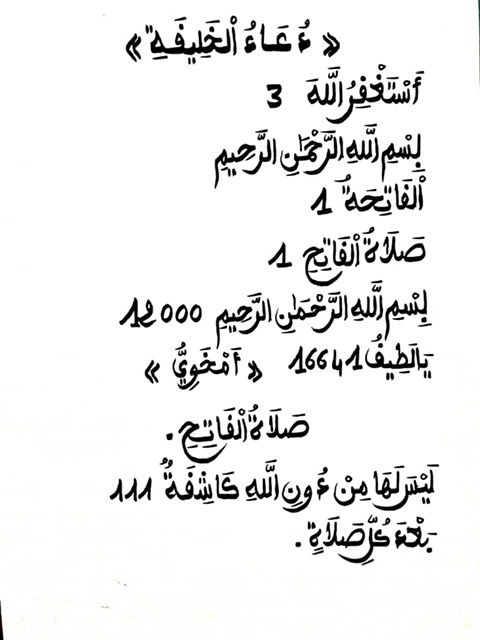 « دُعَاءُ الْخَلِيفَةِ »
أَسْتَغْفِرُ اللَّهَ 3
بِسْمِ اللَّهِ الرَّحْمَٰنِ الرَّحِيمِ
الْفَاتِحَةُ 1
صَلَاةُ الْفَاتِحِ 1
بِسْمِ اللَّهِ الرَّحْمَٰنِ الرَّحِيمِ 12000
يَالَطِيفُ 16641 « أَمْخَوِيُّ »
صَلَاةُ الْفَاتِحِ.
لَيْسَ لَهَا مِنْ دُونِ اللَّهِ كَاشِفَةٌ 111
كُلِّ صَلَاةٍ.